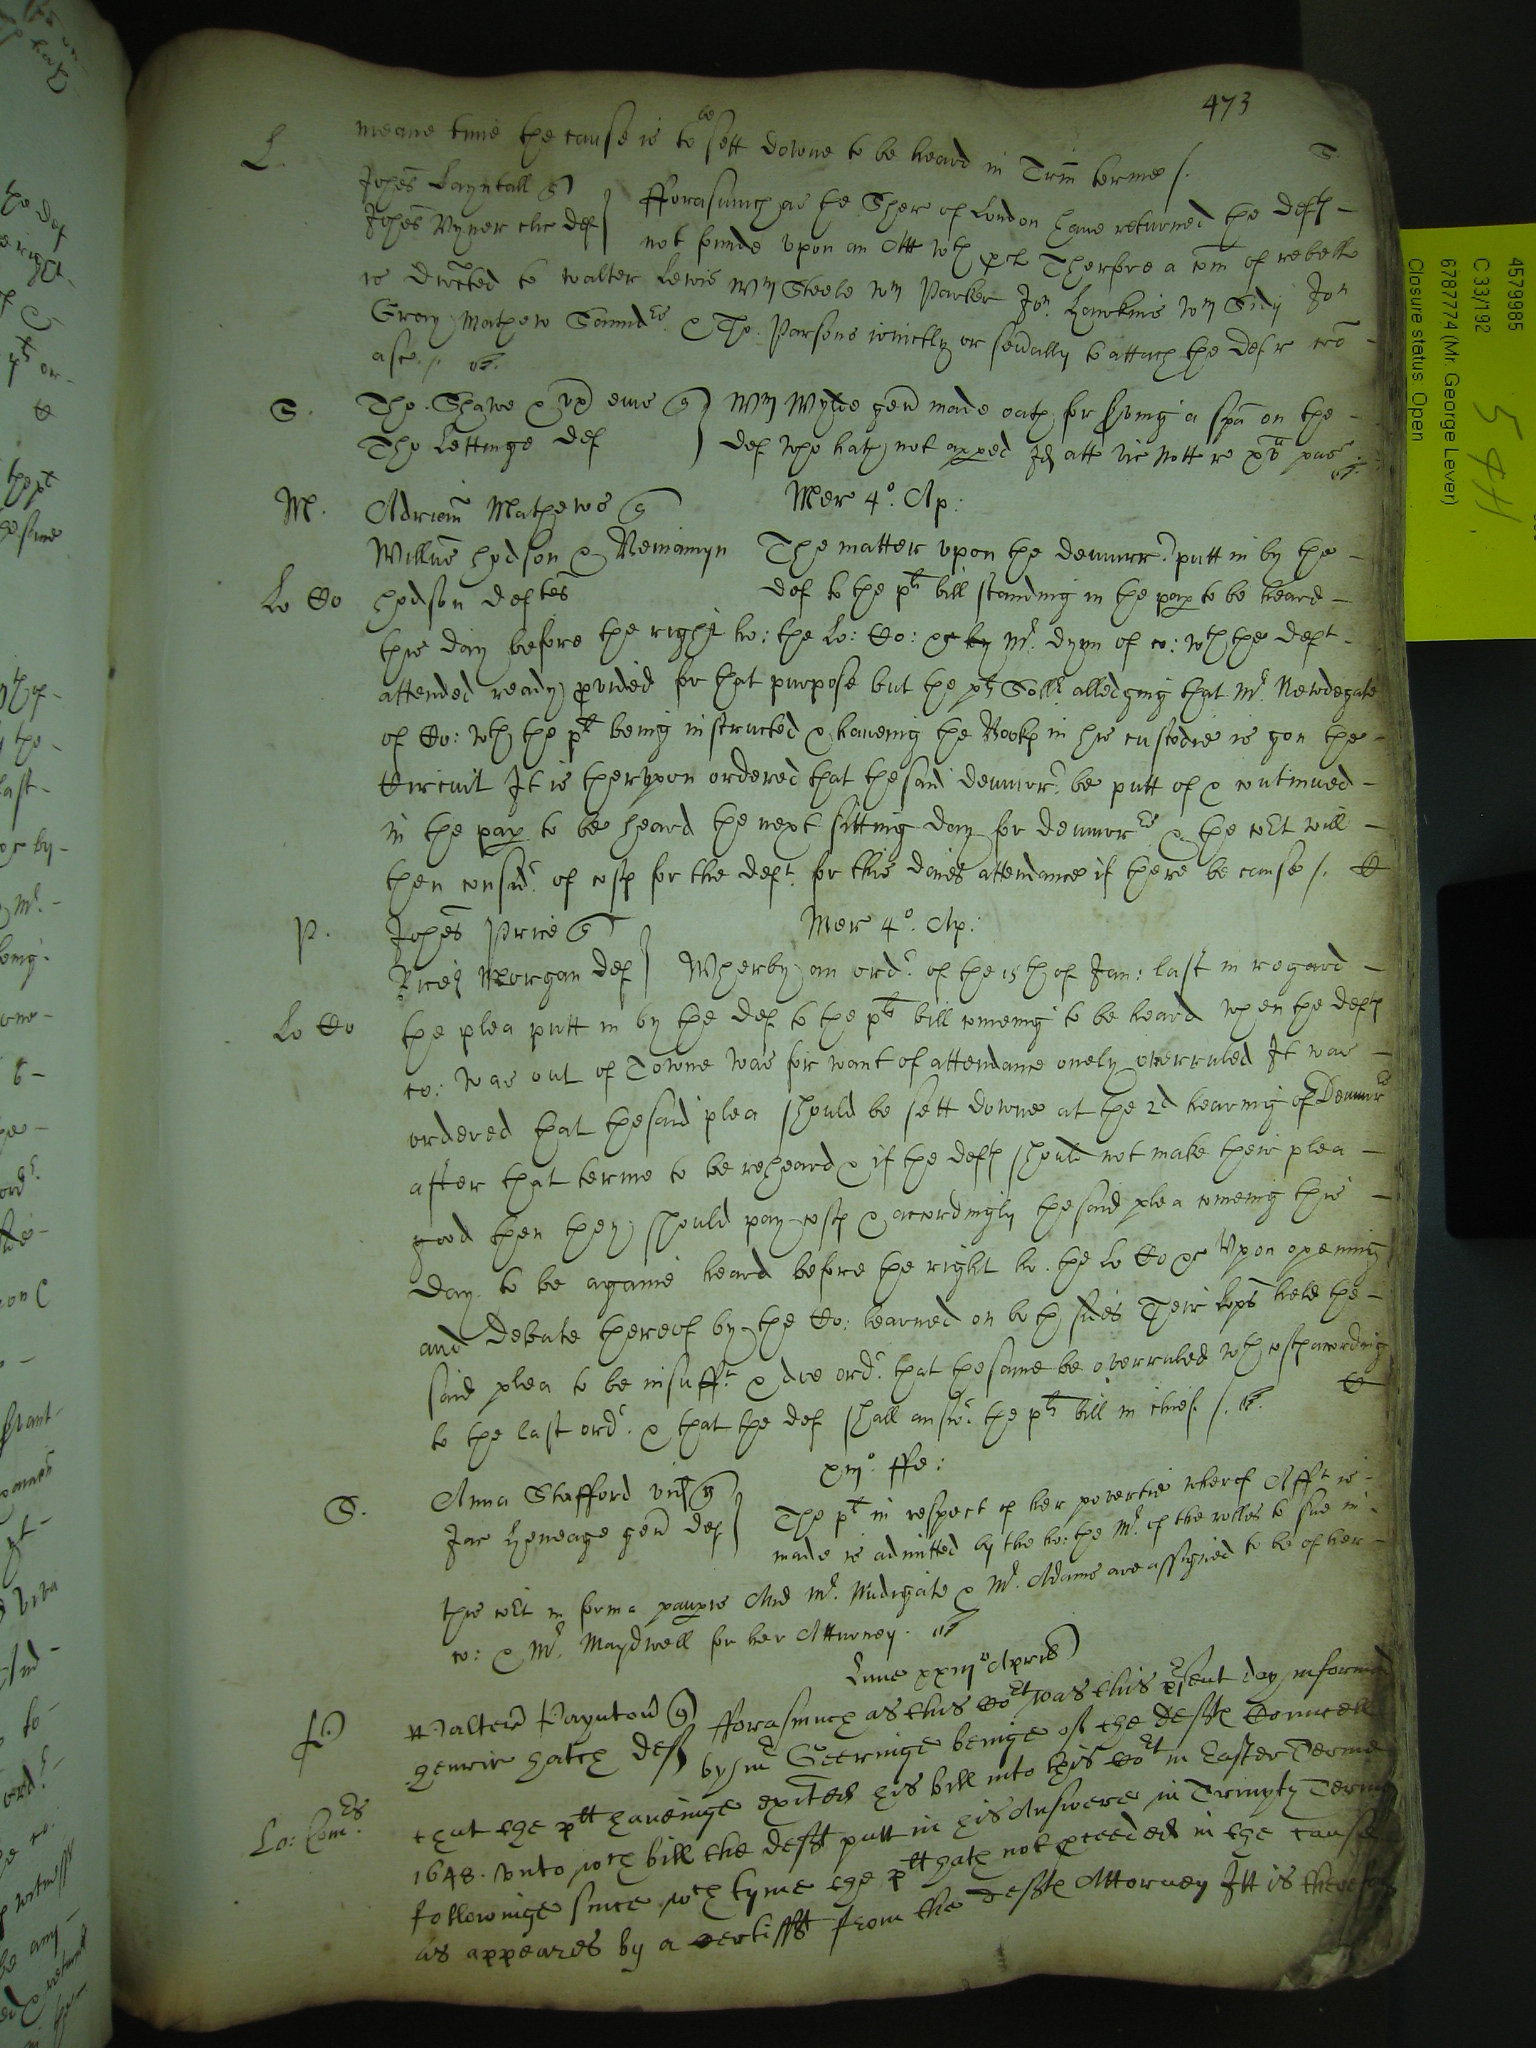 473
meane time the cause is to be sett downe to be heard in Trin terme /.
L
Johes Layntall q
fforasmuch as the Sher of London have returned the deft
Johes Vyner cler def
not founde upon an Att wth pcl Therfore a com of rebell
is directed to walter Lewis Wm Steele Wm Parker Jon Hawkins Wm Jon
Gray Mathew Saunders & Tho. Parsons ioinctly or sevally to attach the def
S.
Tho. Shawe & ux eius q
Wm Wylde gen made oath for sving a spa on the
Tho Lettinge def
def who hath not apped Id att vic Nott re
M.
Adrian Mathewe q
Mer 4o. Ap:
Willus hodson & Beniamyn
The matter upon the demurrr putt in by the
Lo Co
hodson deftes
def to the plts bill standing in the pap to be heard
this day before the right ho: the Lo: Co: &c by Mr. dynn of co: wth the deft
attended ready pvided for that purpose but the plts Sollr alledging that Mr Newdegate
of Co: wth the plt being instructed & haveing the Bookes in his custodie is gon the
Circuit It is therupon ordered that the said demurrr be putt of & continued
in the pap to be heard the next sitting day for demurrs & the cort will
then considr of costs for the deft for this daies attendance if there be cause /.
P.
Johes Price q
Mer 4o. Ap:
Morgan def
Wherby an ordr of the 15th of Jan: last in regard
Lo Co
the plea putt in by the def to the plts bill comeing to be heard when the defts
co: was out of Towne was for want of attendance onely overruled It was
ordered that the said plea should be sett downe at the 2d hearing of Demurrs
after that terme to be reheard & if the defts should not make their plea
good then they should pay costs & accordingly the said plea comeing this
day to be againe heard before the right ho. the Lo Co &c Upon opening
and debate thereof by the Co: learned on both sides Their Lops held the
said plea to be insufft & doe ordr that the same be overruled wth costs according
to the last ordr & that the def shall answr the plts bill in chief /.
xiijo. ffe:
S.
Anna Stafford vid q
The plt in respect of her povertie wherof Afft is
Jac Heneage gen def
made is admitted by the ho: the Mr of the rolles to sue in
this cort in forma paupis And Mr. Nudigate & Mr. Adams are assigned to be of her
co: & Mr Maydwell for her Atturney.
Lune xxiijo Aprilis
P
Walter Payntou q
fforasmuch as this cort was this psent day informed
Henric Hatch deft
by Mr Geeringe beinge of the defts Councell
Lo: Comrs
that the plt haveinge exited his bill into this cort in Easter Terme
1648. unto wch bill the deft putt in his Answere in Trinyty Terme
followinge since wch tyme the plt hath not pceeded in the cause
as appeares by a certifft from the defts Attorney Itt is therefore
4579985
C 33/192
6787774 (Mr. George Lever)
Closure status: Open